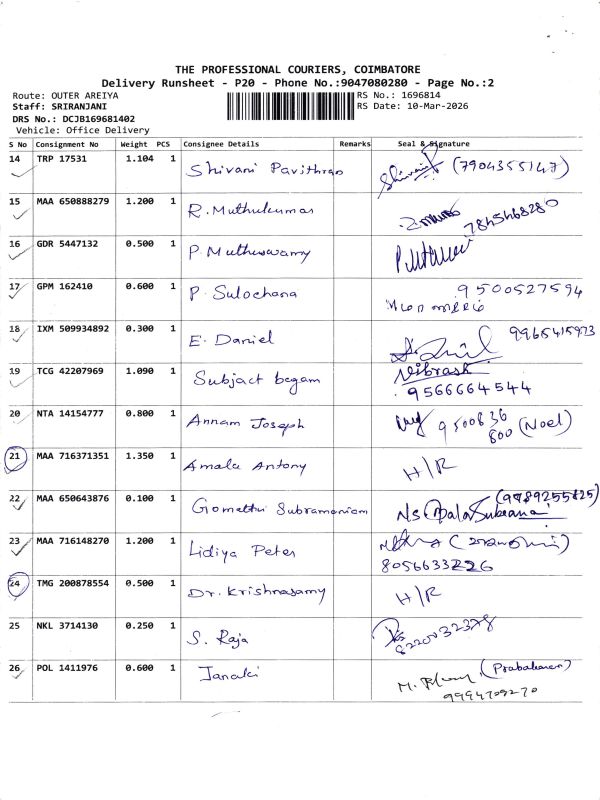 THE PROFESSIONAL COURIERS, COIMBATORE
Delivery Runsheet - P20 - Phone No.:9047080280 - Page No.:2
Route: OUTER AREIYA
RS No.: 1696814
Staff: SRIRANJANI
RS Date: 10-Mar-2026
DRS No.: DCJB169681402
Vehicle: Office Delivery
S No Consignment No Weight PCS Consignee Details Remarks Seal & Signature
14 TRP 17531 1.104 1 Shivani Pavithran (7904355147)
15 MAA 650888279 1.200 1 R. Muthukumar
16 GDR 5447132 0.500 1 P. Muthuswamy
17 GPM 162410 0.600 1 P. Sulochana 9500527594
18 IXM 509934892 0.300 1 E. Daniel 9965415973
19 TCG 42207969 1.090 1 Subjact begam Nibrash
9566664544
20 NTA 14154777 0.800 1 Annam Joseph 9500636
600 (Noel)
21 MAA 716371351 1.350 1 Amala Antony H/R
22 MAA 650643876 0.100 1 Gomathi Subramaniam (9789255825)
23 MAA 716148270 1.200 1 Lidiya Peter
8056633226
24 TMG 200878554 0.500 1 Dr. Krishnasamy H/R
25 NKL 3714130 0.250 1 S. Raja 8220032378
26 POL 1411976 0.600 1 Janaki (Prabakaran)
9994709270